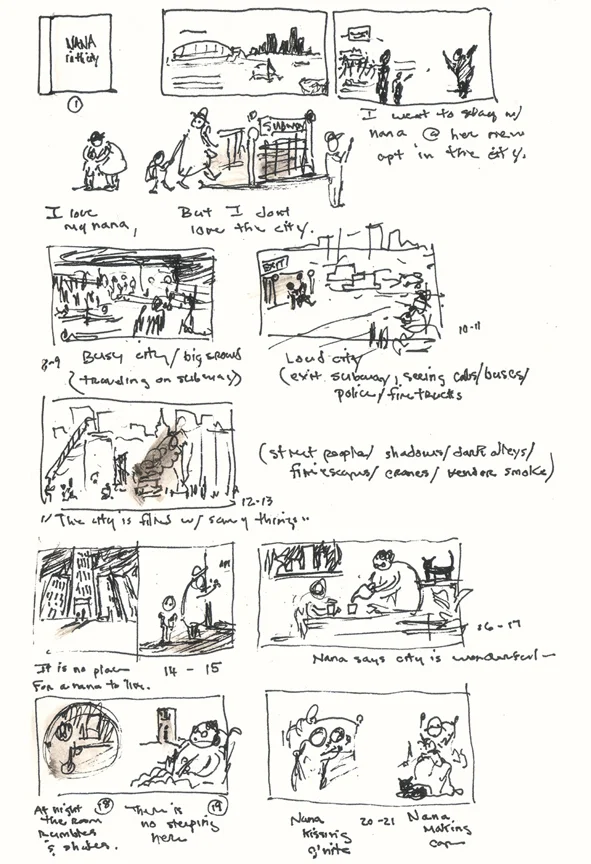 NANA
in the city
1
I went to stay w/
nana @ her new
apt in the city.
SUBWAY
I love
my nana,
But I dont
love the city.
EXIT
8-9
Busy city/big crowd
(traveling on subway)
10-11
Loud city
(exit subway, seeing cabs/buses/
police/firetrucks
(street people/ shadows/dark alleys/
fire escapes/ cranes/ vendor smoke)
12-13
"The city is filled w/ scary things"
It is no place
for a nana to live.
14 - 15
16-17
Nana says city is wonderful—
At night
the room
rumbles
& shakes.
18
There is
no sleeping
here
19
Nana
kissing
g'nite
20-21
Nana
making
cape